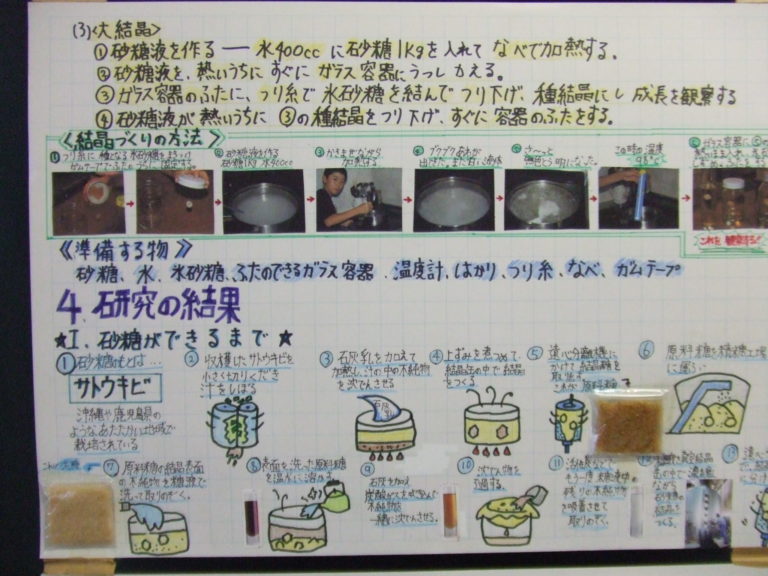 (3)〈大結晶〉
①砂糖液を作る ― 水400ccに砂糖1kgを入れて なべで加熱する。
②砂糖液を、熱いうちに すぐに ガラス容器にうつしかえる。
③ガラス容器のふたに、つり糸で 氷砂糖を結んで つり下げ、種結晶にし 成長を観察する
④砂糖液が熱いうちに ③の種結晶をつり下げ、すぐに容器のふたをする。
《結晶づくりの方法》
①つり糸に種となる氷砂糖を
ガムテープでふたの
②砂糖液を作る
砂糖1kg 水400cc
③かきまぜながら
加熱する
④ブクブクあわが
出てきた。まだ白い液体
⑤さ〜っと
無色とう明になった。
この時の温度
⑥ガラス容器に
これを観察する!!
《準備する物》
砂糖、水、氷砂糖、ふたのできるガラス容器、温度計、はかり、つり糸、なべ、ガムテープ
4. 研究の結果
★I. 砂糖ができるまで★
①砂糖のもとは…
サトウキビ
沖縄や鹿児島県の
ようなあたたかい地域で
栽培されている
②収穫したサトウキビを
小さく切りくだき
汁をしぼる
③石灰乳を加えて
加熱し、汁の中の不純物
を沈でんさせる
石灰
④上ずみを煮つめて、
結晶缶の中で結晶
をつくる
⑤遠心分離機に
かけて結晶と
を取り出す
これが原料糖
⑥原料糖を精糖工場
に運ぶ
⑦原料糖の結晶表面
の不純物を糖液で
洗って取りのぞく。
⑧表面を洗った原料糖
を温水に溶かす。
⑨石灰を加え
炭酸ガスを吹き込んで
不純物を
一緒に沈でんさせる。
⑩沈でん物を
ろ過する。
⑪活性炭などで
残りの不純物
を吸着させて
取りのぞく。
⑫
結晶を
つくる
⑬